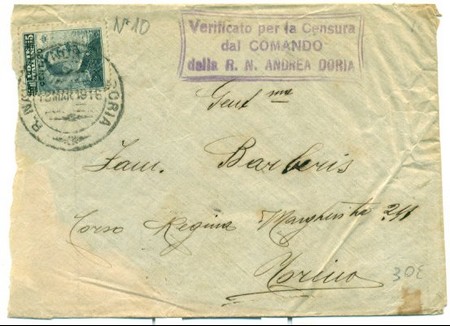 N° 10
Verificato per la Censura
dal COMANDO
della R. N. ANDREA DORIA
15
R. NA DORIA
12 MAR 1916
Gent me
Fam. Barberis
Corso Regina Margherita 211
Torino
30€